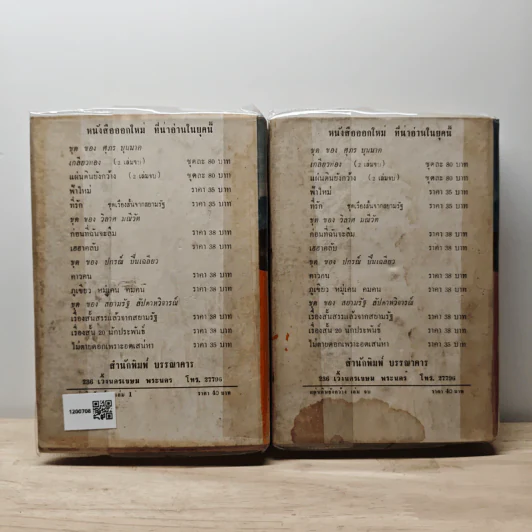 หนังสือออกใหม่ ที่น่าอ่านในยุคนี้
ชุด ของ ศุภร บุนนาค
เกลียวทอง (๒ เล่มจบ) ชุดละ 80 บาท
แผ่นดินยังกว้าง (๒ เล่มจบ) ชุดละ 80 บาท
ฟ้าใหม่ ราคา 35 บาท
ที่รัก ชุดเรื่องสั้นจากสยามรัฐ ราคา 35 บาท
ชุด ของ วิลาศ มณีวัต
ก่อนที่ฉันจะลืม ราคา 38 บาท
เฮฮาคลับ ราคา 38 บาท
ชุด ของ ปกรณ์ ปิ่นเฉลียว
ดาวคน ราคา 38 บาท
ภูเขียว หมู่คน คมคน ราคา 38 บาท
ชุด ของ สยามรัฐ สัปดาหวิจารณ์
เรื่องสั้นสรรแล้วจากสยามรัฐ ราคา 38 บาท
เรื่องสั้น 20 นักประพันธ์ ราคา 38 บาท
ไม้ตายดอกเพราะอดเสน่หา ราคา 35 บาท
สำนักพิมพ์ บรรณาคาร
236 เวิ้งนครเขษม พระนคร โทร. 27796
เล่ม 1 ราคา 40 บาท
1200706
หนังสือออกใหม่ ที่น่าอ่านในยุคนี้
ชุด ของ ศุภร บุนนาค
เกลียวทอง (๒ เล่มจบ) ชุดละ 80 บาท
แผ่นดินยังกว้าง (๒ เล่มจบ) ชุดละ 80 บาท
ฟ้าใหม่ ราคา 35 บาท
ที่รัก ชุดเรื่องสั้นจากสยามรัฐ ราคา 35 บาท
ชุด ของ วิลาศ มณีวัต
ก่อนที่ฉันจะลืม ราคา 38 บาท
เฮฮาคลับ ราคา 38 บาท
ชุด ของ ปกรณ์ ปิ่นเฉลียว
ดาวคน ราคา 38 บาท
ภูเขียว หมู่คน คมคน ราคา 38 บาท
ชุด ของ สยามรัฐ สัปดาหวิจารณ์
เรื่องสั้นสรรแล้วจากสยามรัฐ ราคา 38 บาท
เรื่องสั้น 20 นักประพันธ์ ราคา 38 บาท
ไม้ตายดอกเพราะอดเสน่หา ราคา 35 บาท
สำนักพิมพ์ บรรณาคาร
236 เวิ้งนครเขษม พระนคร โทร. 27796
เล่ม จบ ราคา 40 บาท